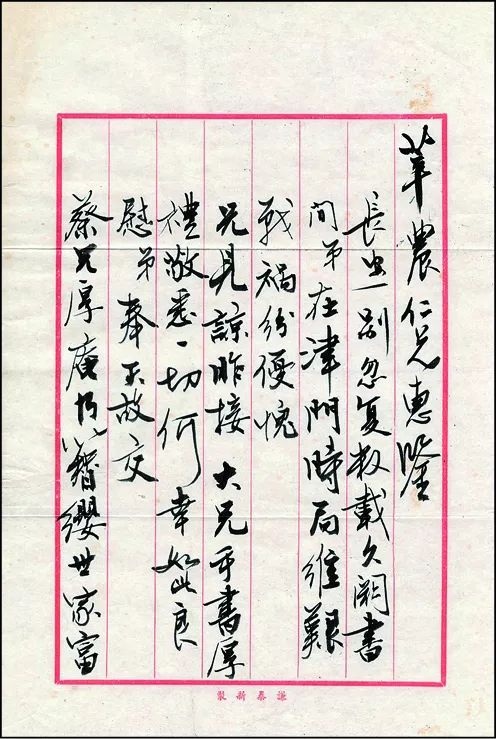 莘農仁兄惠鑒
長一別忽复数載久阔書
问弟在津門時局維艱
戰禍紛擾愧
兄見諒昨接大兄手書厚
禮敬悉一切何幸如此良
慰弟奉天故交
蔡兄厚唐乃簪纓世家富
謙泰新製